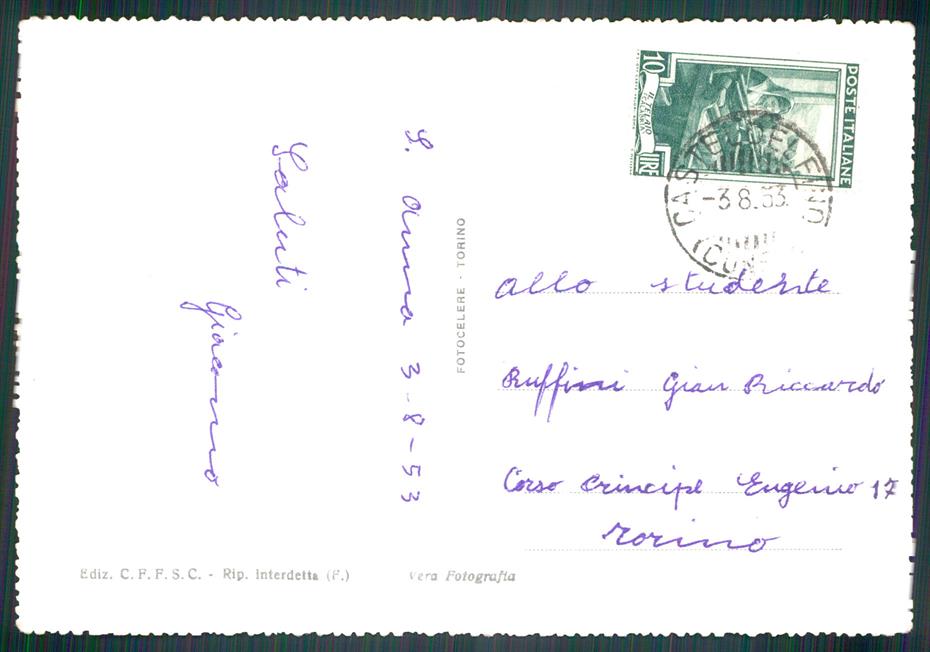 S. Anna 3-8-53
Saluti
Giacomo
FOTOCELERE - TORINO
10
IL TELAIO
LIRE
POSTE ITALIANE
CASTELDELFINO
-3.8.53
(CUN
Allo studente
Ruffini Gian Riccardo
Corso Principe Eugenio 17
Torino
Ediz. C. F. F. S. C. - Rip. Interdetta (F.)
Vera Fotografia